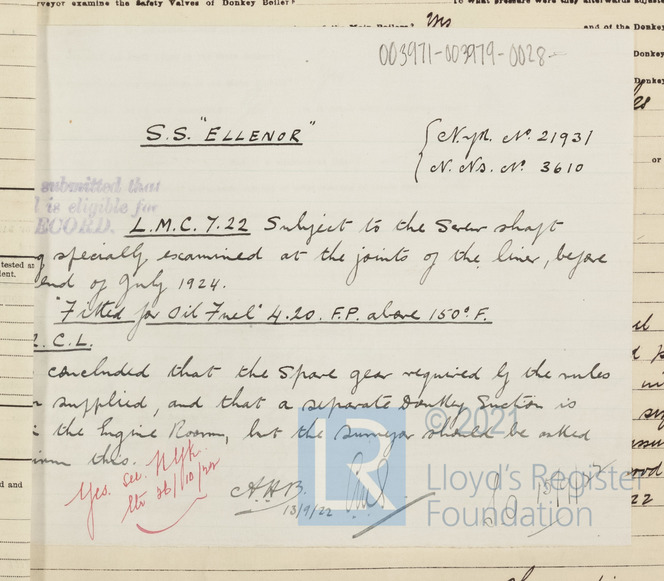 rveyor examine the Safety Valves of Donkey Boiler?
To what pressure were they afterwards adjusted
Main Boilers? Yes and of the Donkey
003971-003979-0028-
Donkey
Donkey
S.S. "ELLENOR"
N.yk. No. 21931
N. Ns. No. 3610
or
submitted that
is eligible for
ECORD. L.M.C. 7.22 Subject to the Screw shaft
tested a
specially examined at the joints of the liner, before
end of July 1924.
"Fitted for Oil Fuel" 4.20. F.P. above 150° F.
C.L.
concluded that the Spare gear required by the rules
supplied, and that a separate Donkey Suction is
© 2021
the Engine Room, but the surveyor should be asked
this.
Yes. See N.Yk.
ltr 26/10/22
Lloyd's Register
Foundation
LR
A.H.B.
13/9/22
and
22